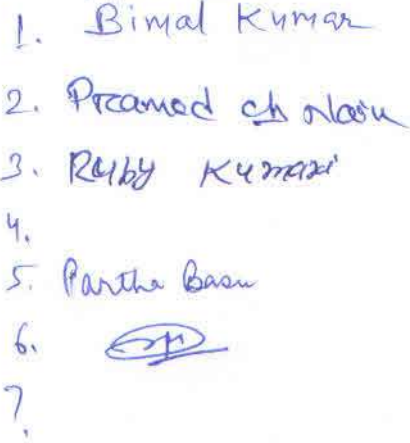 1. Bimal Kumar
2. Pramod ch
3. Ruby Kumari
4.
5. Partha Basu
6.
7.